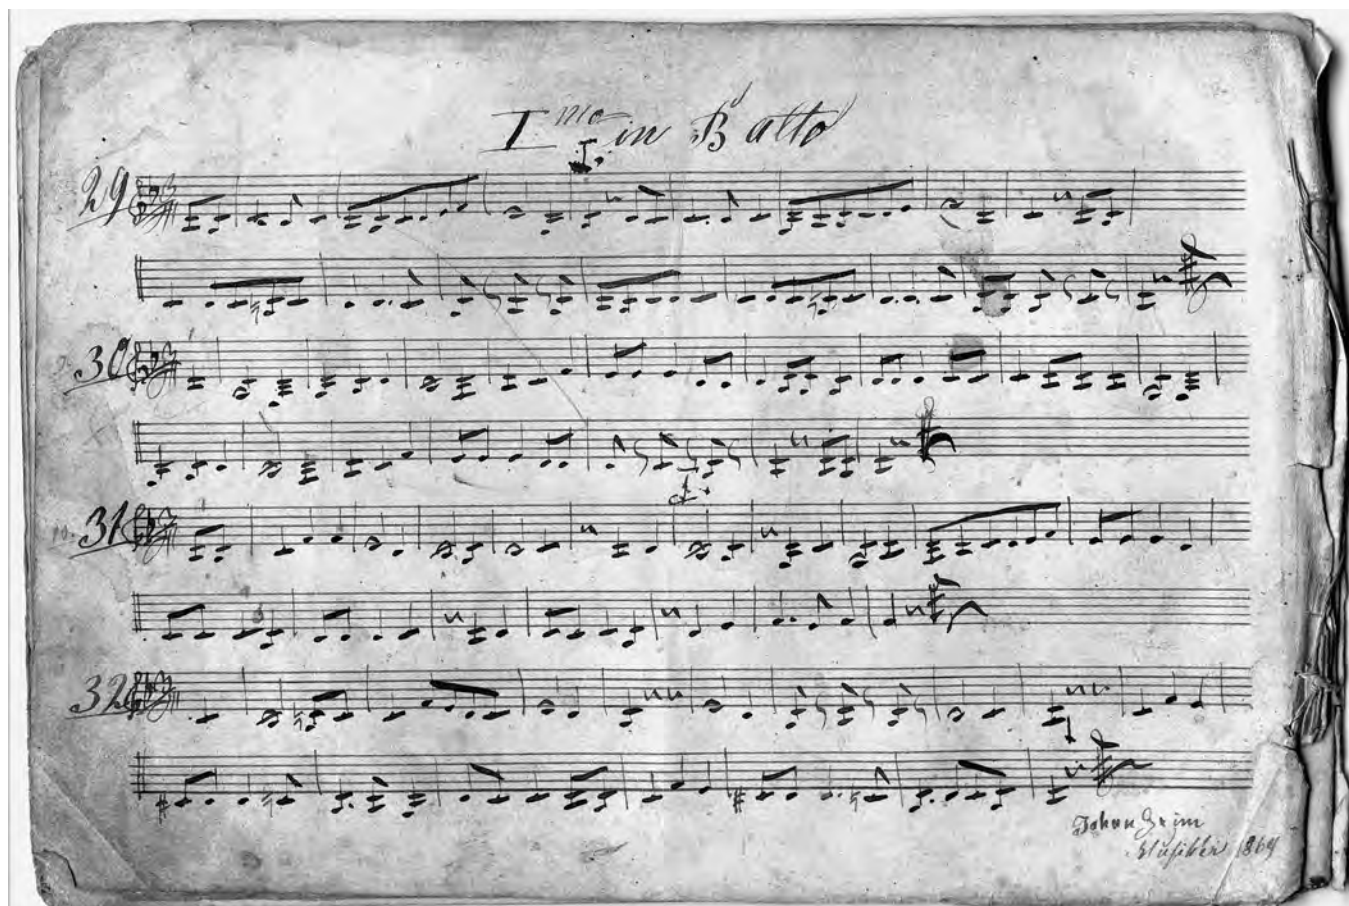 Imo in B alto
29
30
31
32
Johan
1869